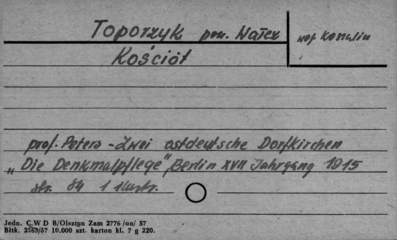 Toporzyk pow. Wałcz woj. Koszalin
Kościół
prof. Peters - Zwei ostdeutsche Dorfkirchen
"Die Denkmalpflege", Berlin XVII Jahrgang 1915
str. 84 1 ilustr.
Jedn. C W D B/Olsztyn Zam 2776 /on/ 57
Bltk. 2563/57 10.000 szt. karton kl. 7 g 220.